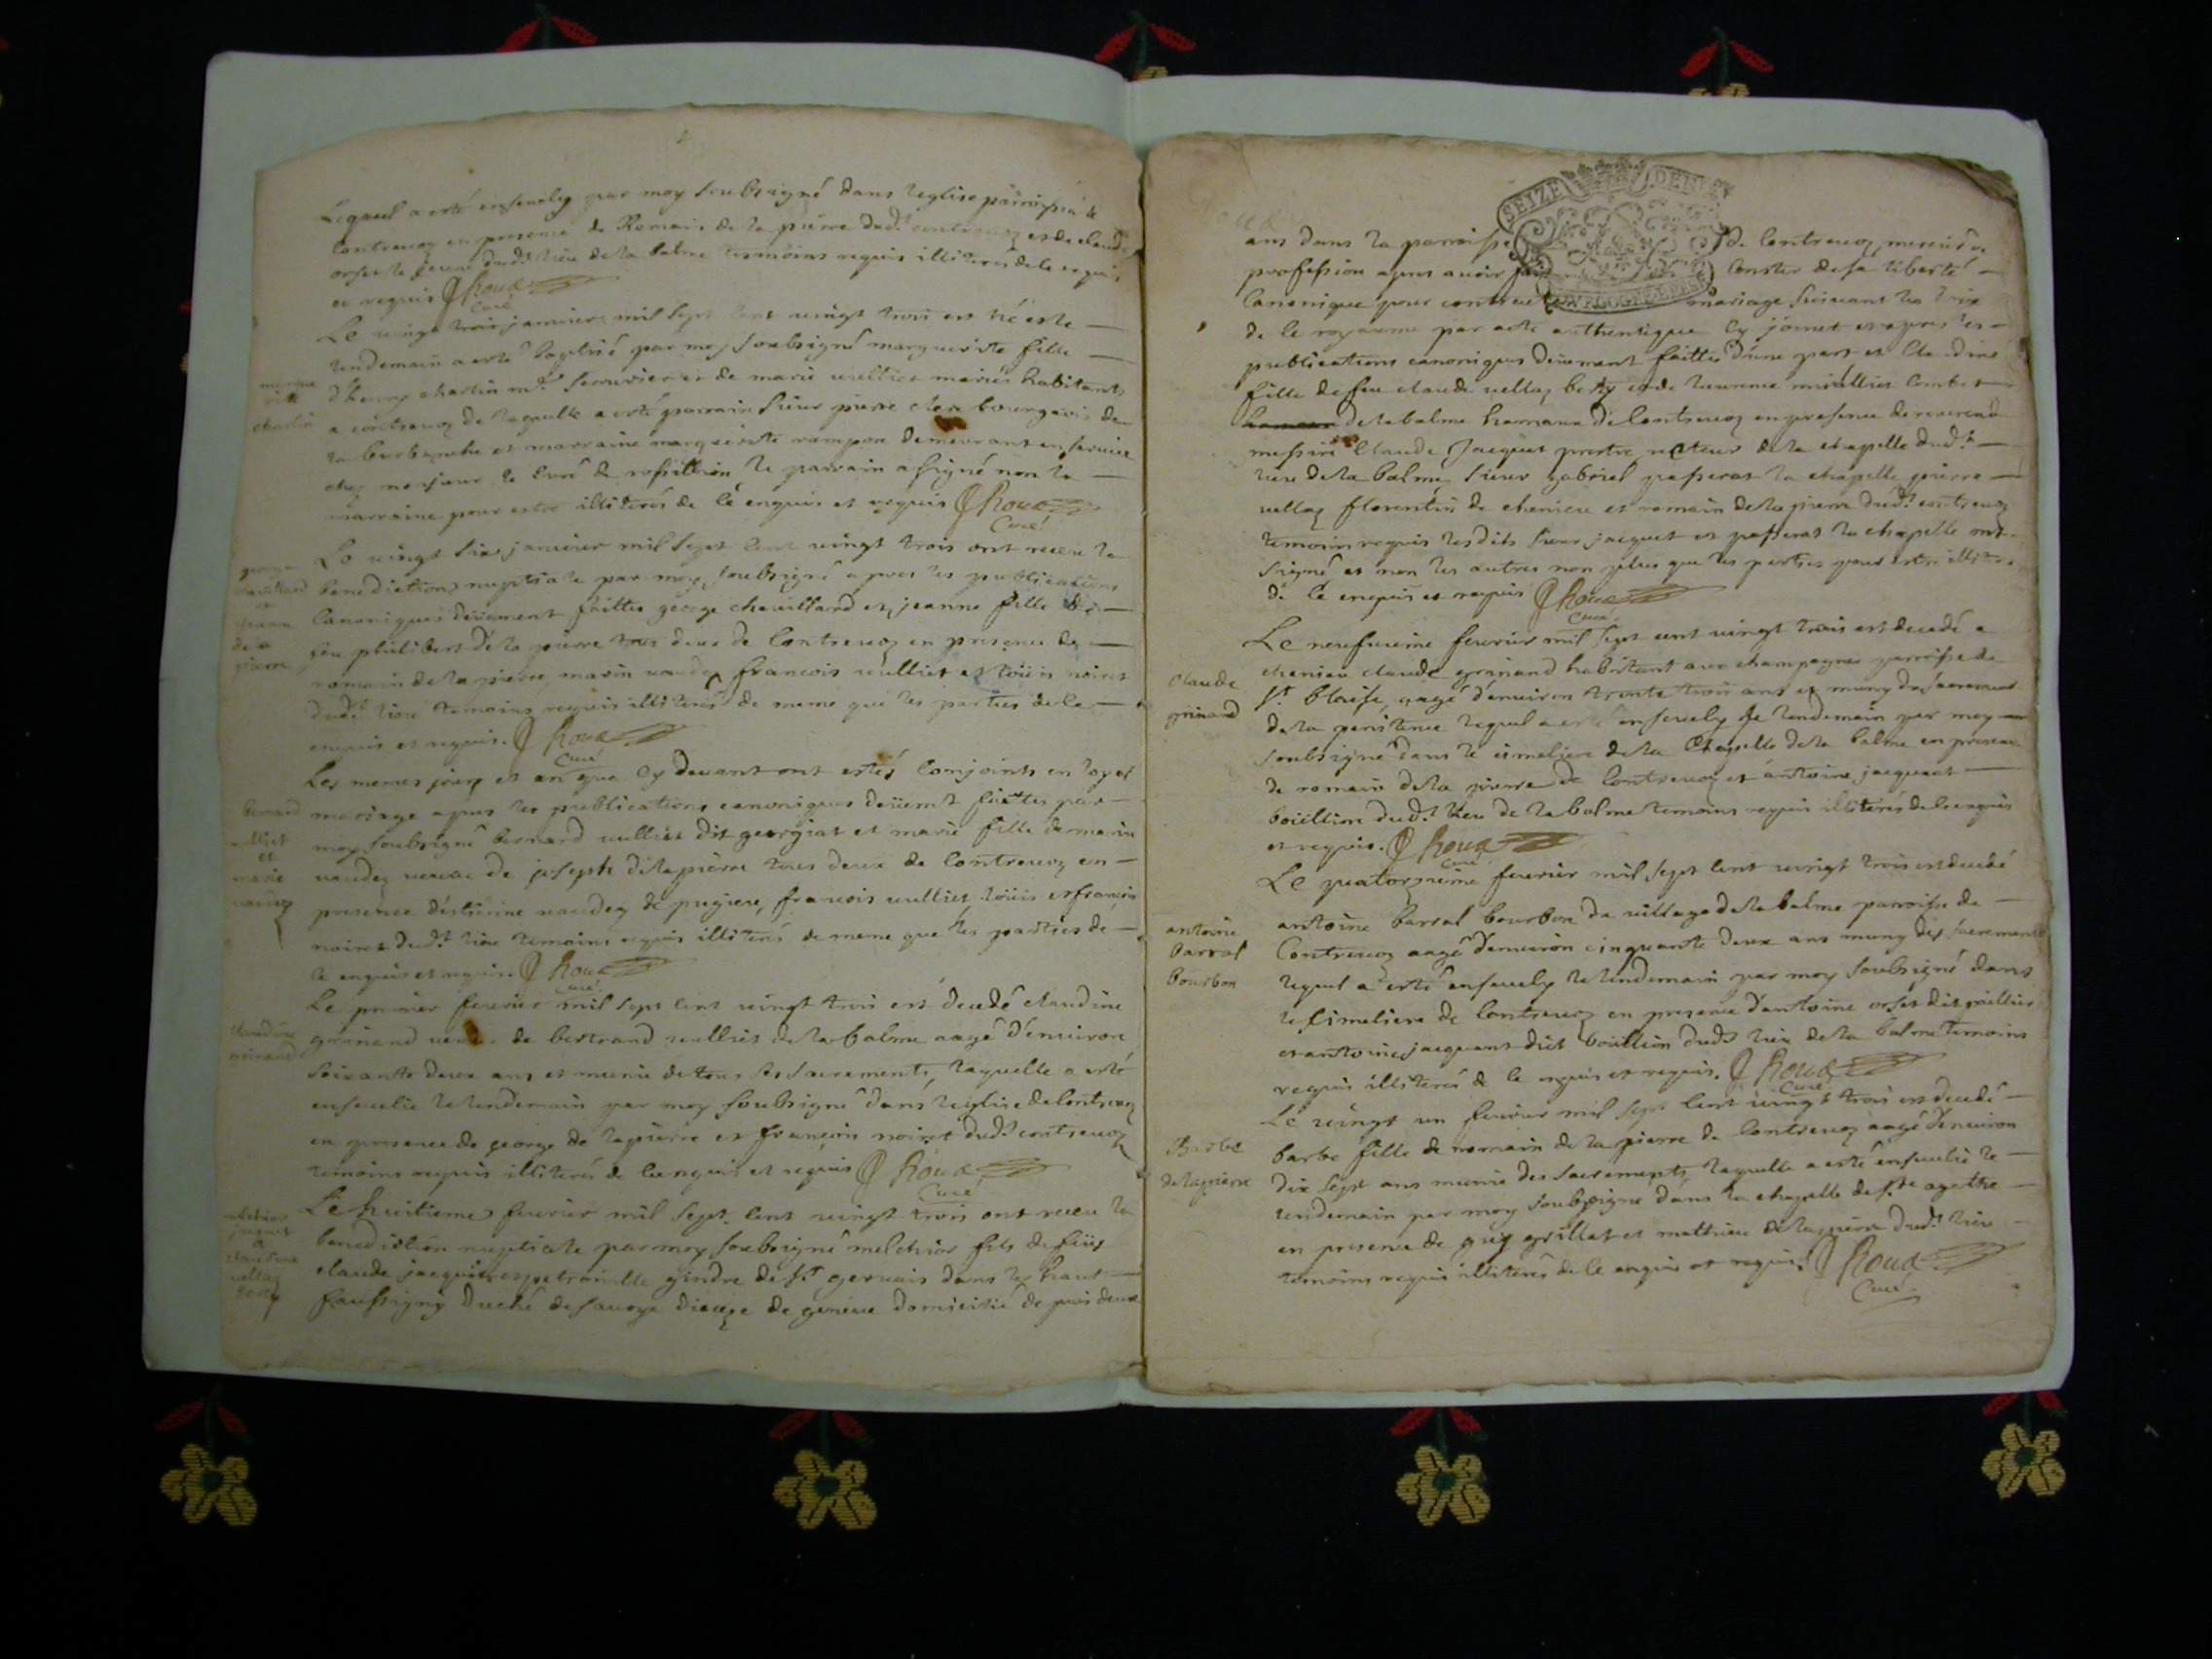 Lequel a esté ensevely par moy soubsigné dans leglise parroissia de
Contrevoz en presence de Romain de la pierre dud.t contrevoz et de claude
orset le jeune dud.t lieu de la balme tesmoins requis illiterés de le enquis
et requis Roux
Curé
Le vingt trois janvier mil sept cent vingt trois est né et le
lendemain a esté baptisé par moy soubsigné marguerite fille
dhenry charlin m.e serrurier et de marie vulliet mariés habitants
a contrevoz de laquelle a esté parrain sieur pierre bourgeois de
la burbanche et marraine marguerite rampon demeurant en service
chez monsieur le Curé de rossillion le parrain a signé non la
marraine pour estre illiterés de le enquis et requis Roux
Curé
Le vingt six janvier mil sept cent vingt trois ont receu la
benediction nuptiale par moy soubsigné apres les publications
Canoniques deüement faittes george chavillard et jeanne fille de
feu philibert de la pierre tous deux de Contrevoz en presence de
romain de la pierre marin vaudey francois vulliet et loüis noiret
dud.t lieu temoins requis illiterés de meme que les parties de le
enquis et requis. Roux
Curé
Les memes jour et an que cy devant ont estés Conjoints en loyal
mariage apres les publications canoniques deüemt faittes par
moy soubsigné bernard vulliet dit georgiat et marie fille de marin
vaudey veuve de joseph de la pierre tous deux de Contrevoz en
presence destienne vaudey de pugieu, francois vulliet, loüis et francois
noiret dud.t lieu temoins requis illiterés de meme que les parties de
le enquis et requis. Roux
Curé
Le premier fevrier mil sept cent vingt trois est decedé claudine
grinand veuve de bertrand vulliet de la balme aagé d'environ
soixante deux ans et munie de tous les sacrements, laquelle a esté
ensevelie le lendemain par moy soubsigné dans leglise de Contrevoz
en presence de george de lapierre et francois noiret dud.t contrevoz
temoins requis illiterés de le enquis et requis Roux
Curé
Le huitieme fevrier mil sept cent vingt trois ont receu la
benediction nuptiale par moy soubsigné melchior fils de feüs
claude jacquet et petronille gindre de S.t gervais dans le haut
faussigny duché de savoye dioceze de geneve domicilié de puis deux
marguerite
charlin
george
chavillard
et
jeanne
de la
pierre
bernard
vulliet
et
marie
vaudey
claudine
grinand
melchior
jacquet
et
claudine
vellaz
ans dans la parroisse de Contrevoz mercier de
profession apres avoir fait Conster de sa liberté
Canonique pour contracter mariage suivant les loix
de le royaume par acte authentique cy joinct et apres les
publications canoniques deüement faittes d'une part et Claudine
fille de feu claude vellaz et de laurence miallier Combet
de la balme hameau de Contrevoz en presence de reverend
messire Claude Jacquet prestre recteur de la chapelle dud.t
lieu de la balme, sieur gabriel passerat la chapelle pierre
vellaz florentin de cheniere et romain de la pierre dud.t contrevoz
temoins requis lesdits sieur jacquet et passerat la chapelle ont
signé et non les autres non plus que les parties pour estre illiterés
de le enquis et requis Roux
Curé
Le neufvieme fevrier mil sept cent vingt trois est decedé a
chenieu claude grinand habitant aux champagnes parroisse de
S.t blaise, aagé d'environ trente trois ans et muny du sacrement
de la penitence lequel a esté ensevely le lendemain par moy
soubsigné dans le cimetiere de la Chapelle de la balme en presence
de romain de la pierre de Contrevoz et antoine jacquaet
boüillion dud.t lieu de la balme temoins requis illiterés de le enquis
et requis. Roux
Curé
Le quatorzieme fevrier mil sept cent vingt trois est decedé
antoine barral bourbon du village de la balme parroisse de
Contrevoz aagé d'environ cinquante deux ans muny des sacrements
lequel a esté ensevely le lendemain par moy soubsigné dans
le Cimetiere de Contrevoz en presence d'antoine orset dit grillier
et antoine jacquaet dit boüillion dud.t lieu de la balme temoins
requis illiterés de le enquis et requis. Roux
Curé
Le vingt un fevrier mil sept cent vingt trois est decedé
barbe fille de romain de la pierre de Contrevoz aagé d'environ
dix sept ans munie des sacrements, laquelle a esté ensevelie le
lendemain par moy soubsigné dans la chapelle de s.te agathe
en presence de guy grillat et mathieu de la pierre dud.t lieu
temoins requis illiterés de le enquis et requis. Roux
Curé
SEIZE DEN
claude
grinand
antoine
barral
bourbon
Barbe
de lapierre